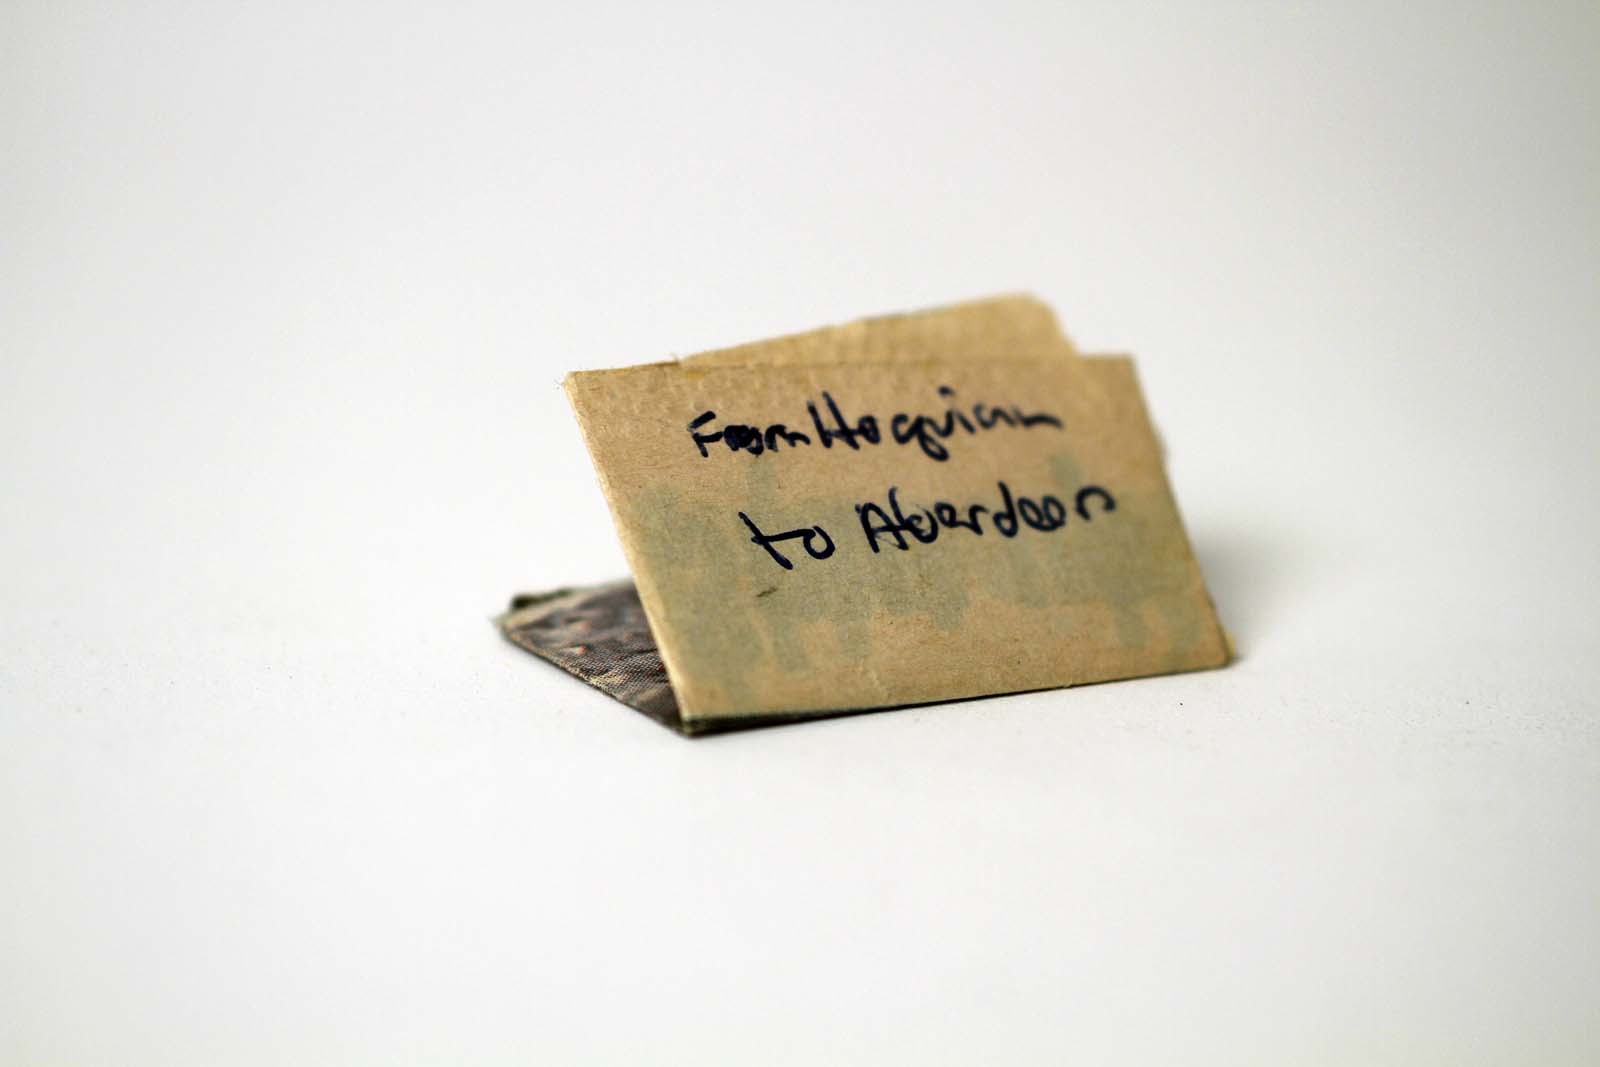 From Hoquiam
to Aberdeen